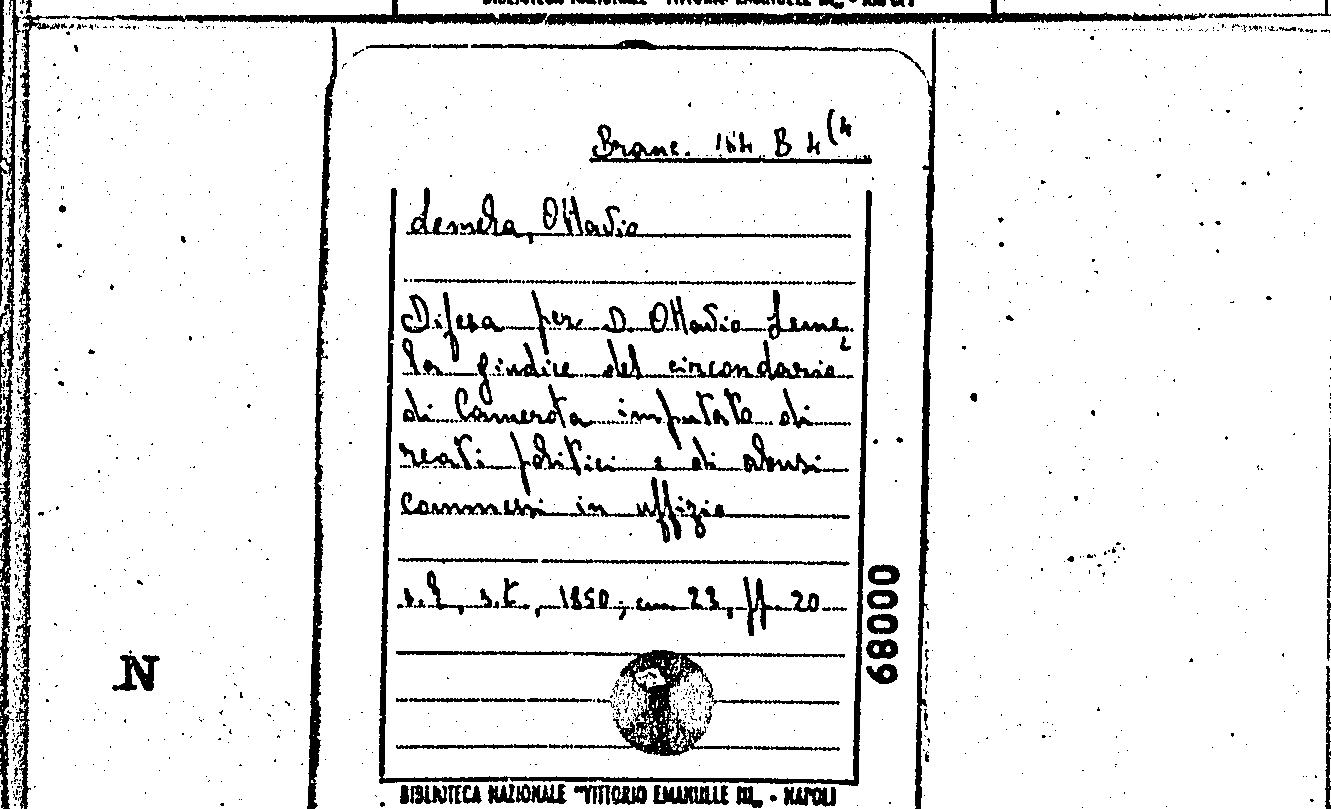 BIBLIOTECA NAZIONALE "VITTORIO EMANUELE III" - NAPOLI
Branc. 164 B 4(4
Lemeta, Ottavio
Difesa per D. Ottavio Leme
ta giudice del circondario
di Camerota imputato di
reati politici e di abusi
commessi in uffizio
s.l., s.t., 1850; cm 23, ff. 20
68000
N
BIBLIOTECA NAZIONALE "VITTORIO EMANUELE III" - NAPOLI